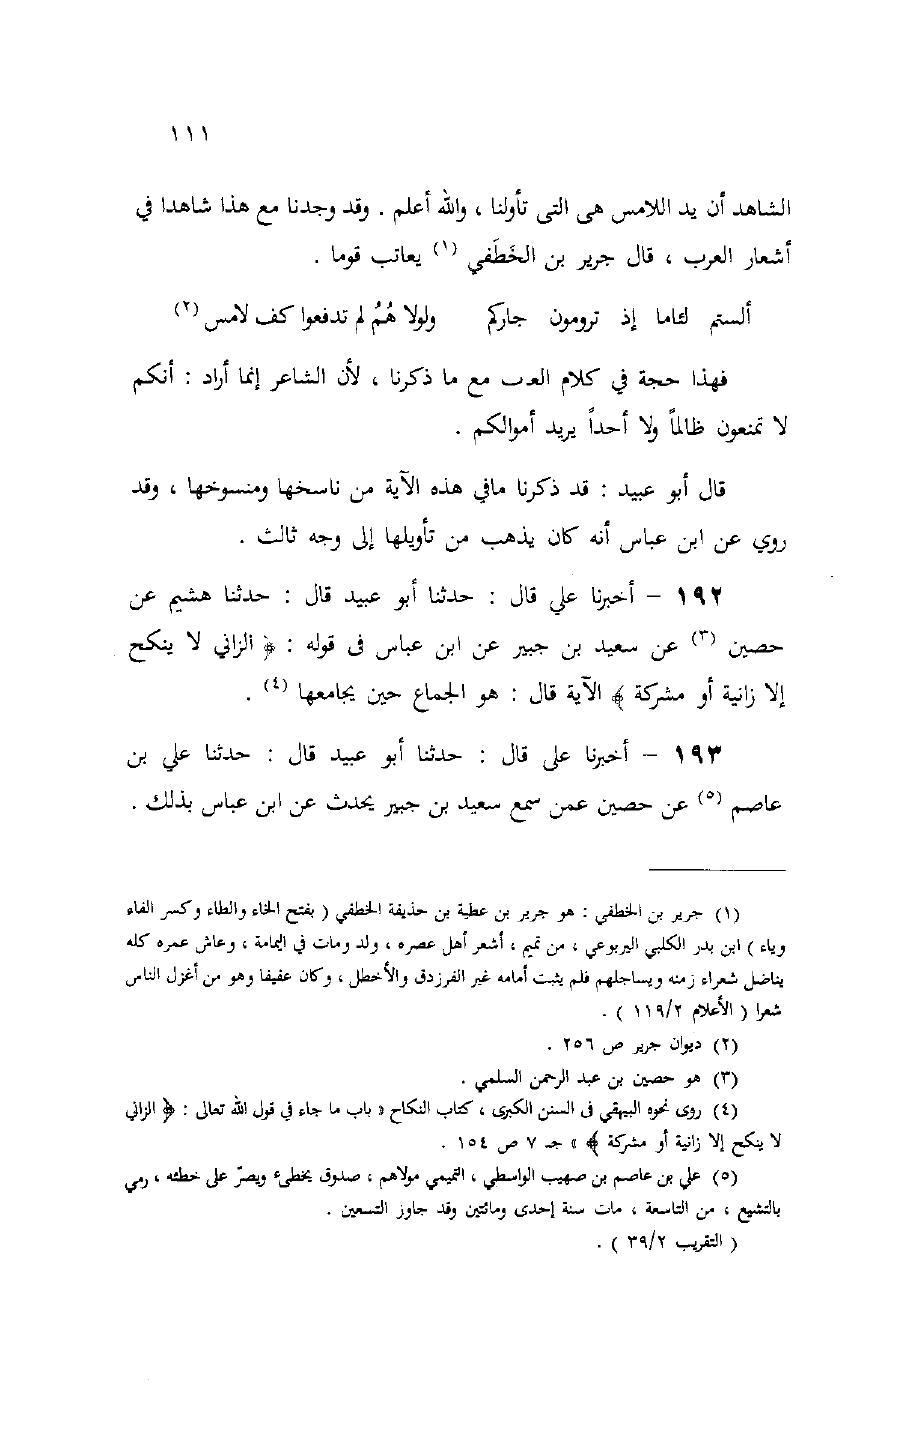 ١١١
الشاهد أن يد اللامس هى التى تأولنا ، والله أعلم . وقد وجدنا مع هذا شاهدا في
أشعار العرب ، قال جرير بن الخَطَفي (١) يعاتب قوما .
ألستم لئاما إذ ترومون جاركم ولولا هُمُ لم تدفعوا كف لامس (٢)
فهذا حجة في كلام العرب مع ما ذكرنا ، لأن الشاعر إنما أراد : أنكم
لا تمنعون ظالماً ولا أحداً يريد أموالكم .
قال أبو عبيد : قد ذكرنا مافي هذه الآية من ناسخها ومنسوخها ، وقد
روي عن ابن عباس أنه كان يذهب من تأويلها إلى وجه ثالث .
١٩٢ – أخبرنا علي قال : حدثنا أبو عبيد قال : حدثنا هشيم عن
حصين (٣) عن سعيد بن جبير عن ابن عباس فى قوله : ﴿ الزاني لا ينكح
إلا زانية أو مشركة ﴾ الآية قال : هو الجماع حين يجامعها (٤) .
١٩٣ – أخبرنا على قال : حدثنا أبو عبيد قال : حدثنا علي بن
عاصم (٥) عن حصين عمن سمع سعيد بن جبير يحدث عن ابن عباس بذلك .
(١) جرير بن الخطفي : هو جرير بن عطية بن حذيفة الخطفي ( بفتح الخاء والطاء وكسر الفاء
وياء ) ابن بدر الكلبي اليربوعي ، من تميم ، أشعر أهل عصره ، ولد ومات في اليمامة ، وعاش عمره كله
يناضل شعراء زمنه ويساجلهم فلم يثبت أمامه غير الفرزدق والأخطل ، وكان عفيفا وهو من أغزل الناس
شعرا ( الأعلام ١١٩/٢ ) .
(٢) ديوان جرير ص ٢٥٦ .
(٣) هو حصين بن عبد الرحمن السلمي .
(٤) روى نحوه البيهقي فى السنن الكبرى ، كتاب النكاح « باب ما جاء في قول الله تعالى : ﴿ الزاني
لا ينكح إلا زانية أو مشركة ﴾ » جـ ٧ ص ١٥٤ .
(٥) علي بن عاصم بن صهيب الواسطي ، التميمي مولاهم ، صدوق يخطىء ويصرّ على خطئه ، رمي
بالتشيع ، من التاسعة ، مات سنة إحدى ومائتين وقد جاوز التسعين .
( التقريب ٣٩/٢ ) .